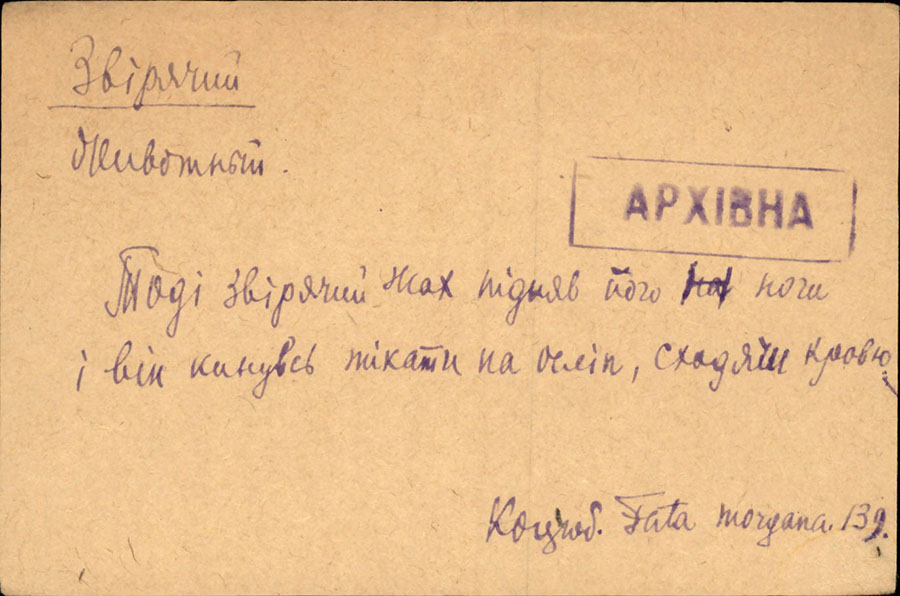 Звірячий
Животный.
АРХІВНА
Тоді звірячий жах підняв його на ноги
і він кинувсь тікати на осліп, сходячи кровю.
Коцюб. Fata morgana. 139.